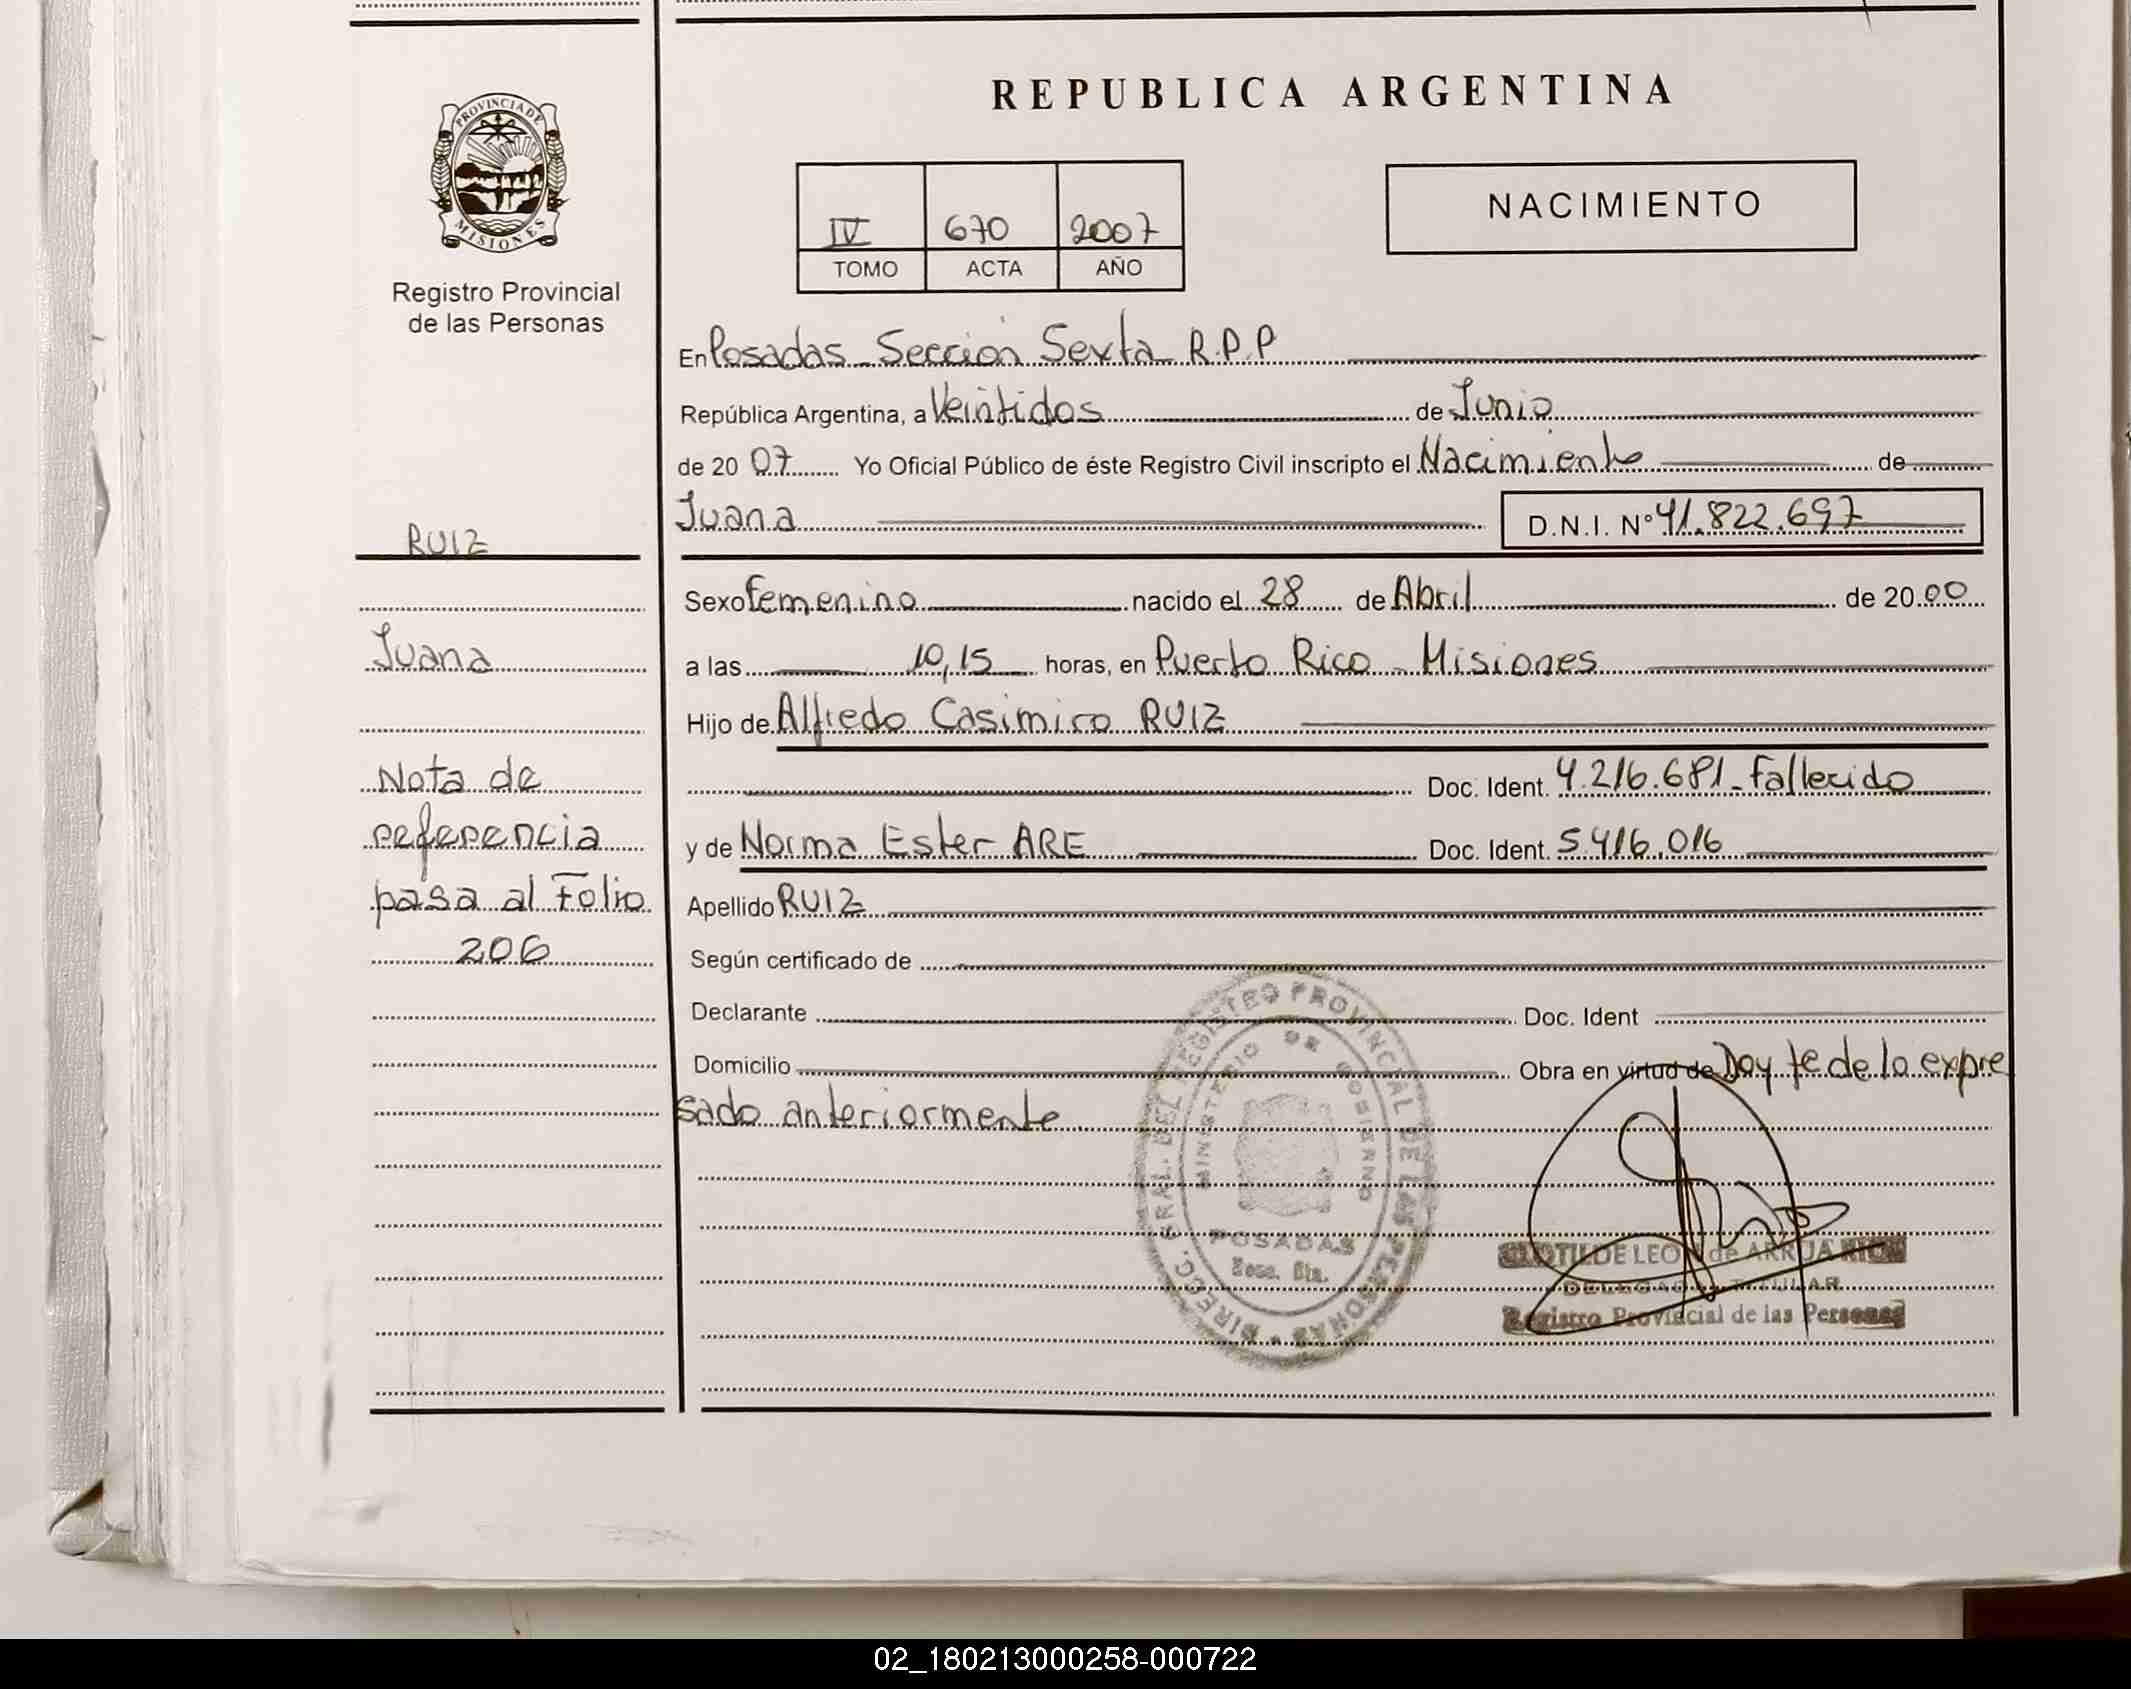 REPUBLICA ARGENTINA
PROVINCIA DE
MISIONES
Registro Provincial
de las Personas
IV 670 2007
TOMO ACTA AÑO
NACIMIENTO
En Posadas Sección Sexta R.P.P
República Argentina, a Veintidos de Junio
de 20 07 Yo Oficial Público de éste Registro Civil inscripto el Nacimiento de
Juana D.N.I. N° 41.822.697
RUIZ
Sexo Femenino nacido el 28 de Abril de 20 00
Juana
a las 10,15 horas, en Puerto Rico - Misiones
Hijo de Alfredo Casimiro RUIZ
Nota de
Doc. Ident. 4.216.681 - Fallecido
referencia
y de Norma Ester ARE Doc. Ident. 5.416.016
pasa al Folio
Apellido RUIZ
206
Según certificado de
Declarante Doc. Ident
Domicilio Obra en virtud de Doy fe de lo expre
sado anteriormente
DIRECC. GRAL. DEL REGISTRO PROVINCIAL DE LAS PERSONAS
MINISTERIO DE GOBIERNO
POSADAS
Secc. 6ta.
CLOTILDE LEON de ARRUA
DELEGADA TITULAR
Registro Provincial de las Personas
02_180213000258-000722